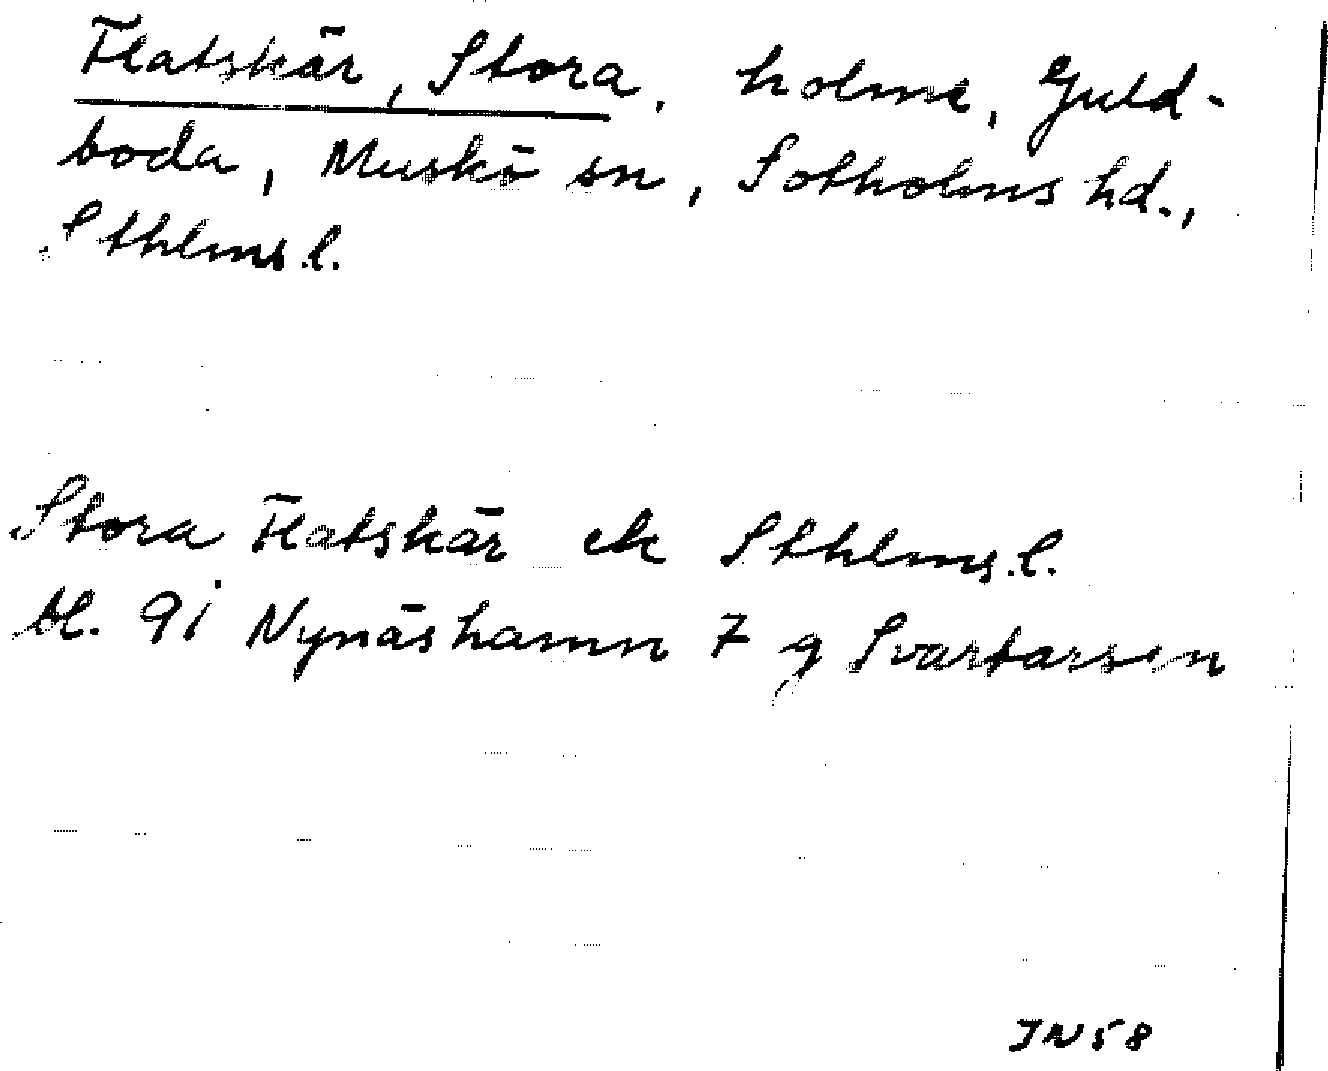 Flatskär, Stora, holme, Guld-
boda, Muskö sn, Sotholms hd.,
Sthlms l.
Stora Flatskär ek Sthlms.l.
bl. 9i Nynäshamn 7 g Svartarsen
JN58